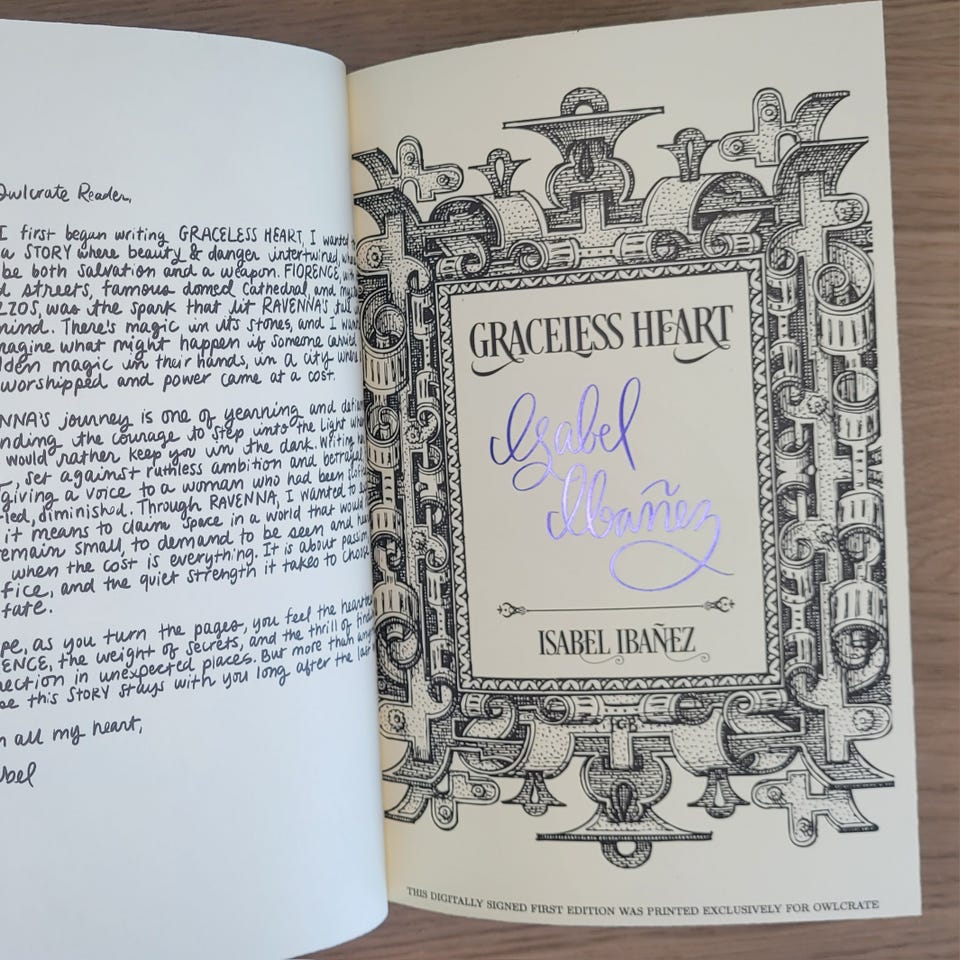 Owlcrate Reader,
I first began writing GRACELESS HEART, I wanted
a STORY where beauty & danger intertwined,
be both salvation and a weapon. FLORENCE,
streets, famous domed Cathedral, and
was the spark that lit RAVENNA'S
mind. There's magic in its stones, and I
what might happen if someone carried
magic in their hands, in a city
worshipped and power came at a cost.
journey is one of yearning and
the courage to step into the light
would rather keep you in the dark. Writing
set against ruthless ambition and betrayal,
giving a voice to a woman who had been
diminished. Through RAVENNA, I wanted to
it means to claim space in a world that would
remain small, to demand to be seen and
when the cost is everything. It is about passion,
and the quiet strength it takes to choose
fate.
as you turn the pages, you feel the
the weight of secrets, and the thrill of
in unexpected places. But more than
this STORY stays with you long after the last
all my heart,
GRACELESS HEART
Isabel
Ibañez
ISABEL IBAÑEZ
THIS DIGITALLY SIGNED FIRST EDITION WAS PRINTED EXCLUSIVELY FOR OWLCRATE